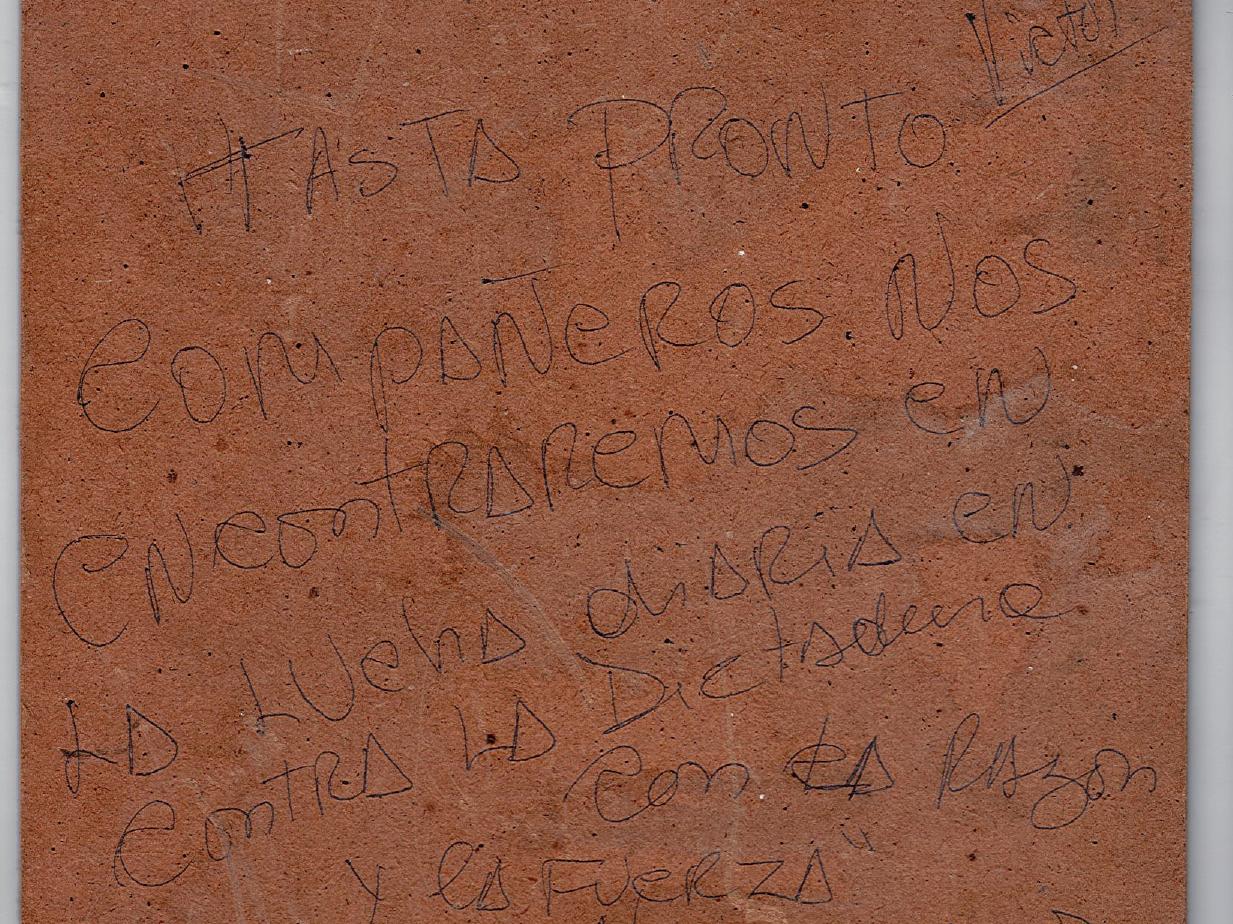 Victor
HASTA PRONTO
COMPAÑEROS NOS
ENCONTRAREMOS EN
LA LUCHA diARIA EN
CONTRA LA Dictadura
CON LA RAZON
Y LA FUERZA"